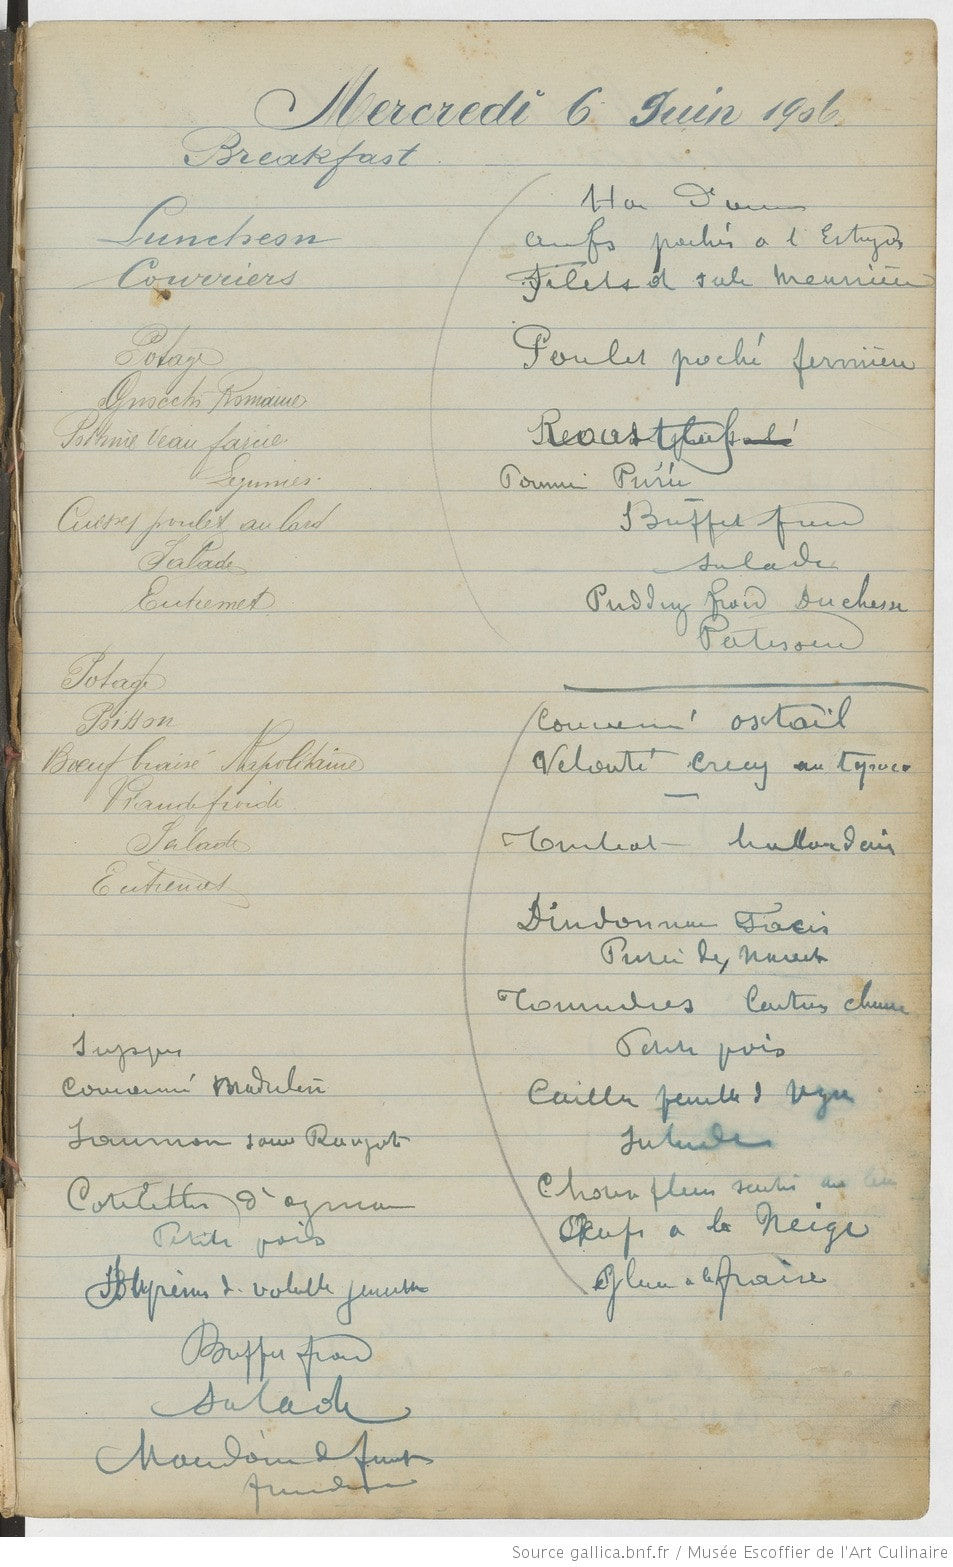 Mercredi 6 Juin 1906
Breakfast
Luncheon
Courriers
Potage
Gnocchi Romaine
Poitrine Veau farcie
Legumes
Cuisses poulet au lard
Salade
Entremet
Potage
Poisson
Bœuf braisé Napolitaine
Viande froide
Salade
Entremet
Supper
Consommé Madrilène
Saumon
Cotelettes d'agneau
Petits pois
Suprêmes de volaille
Buffet froid
Salade
de fruits
Hor D'œuvre
œufs pochés a l'Estragon
Filets de sole Meunière
Poulet poché fermière
Roast
Pommes Purée
Buffet froid
salade
Pudding froid Duchesse
Patisserie
Consommé oxtail
Velouté Crecy au tapioca
Turbot hollandais
Dindonneau Farcis
Purée de Navet
Petits pois
Cailles feuille d Vigne
Salade
Choux fleur
Œufs a la Neige
Glace a la fraise
Source gallica.bnf.fr / Musée Escoffier de l'Art Culinaire